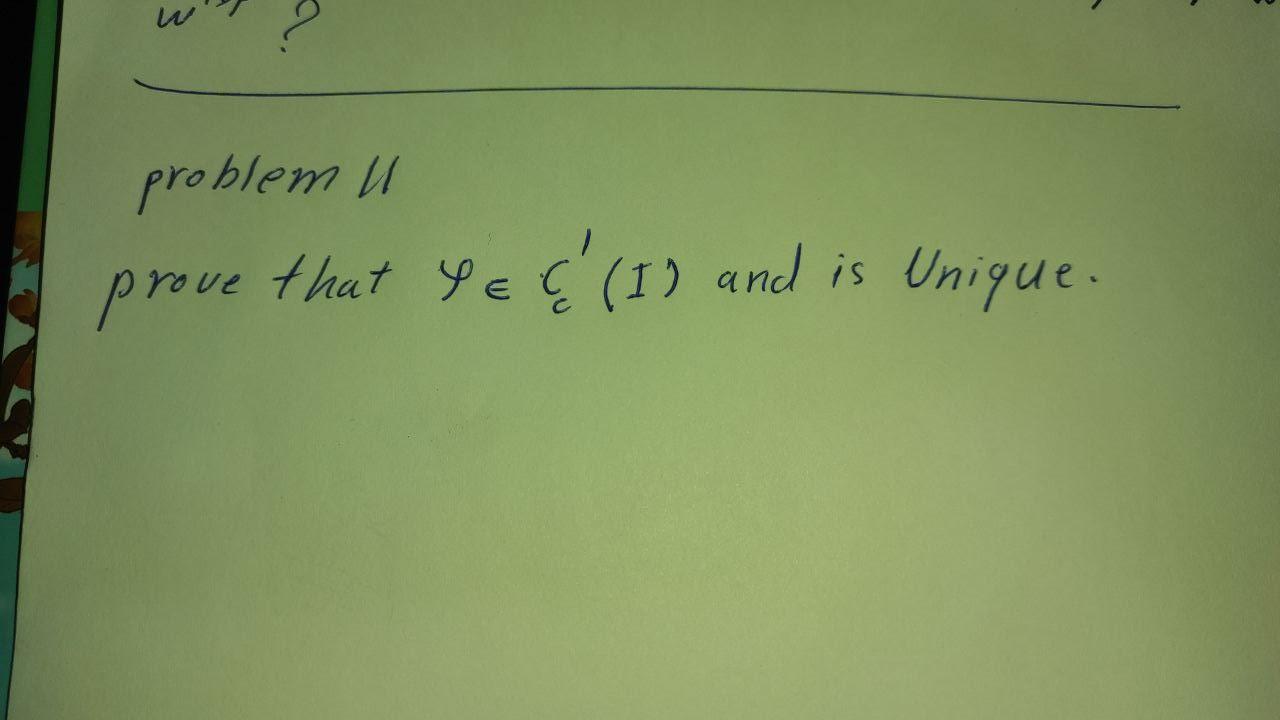 ?
problem 11
prove that φ ∈ C_c'(I) and is Unique.